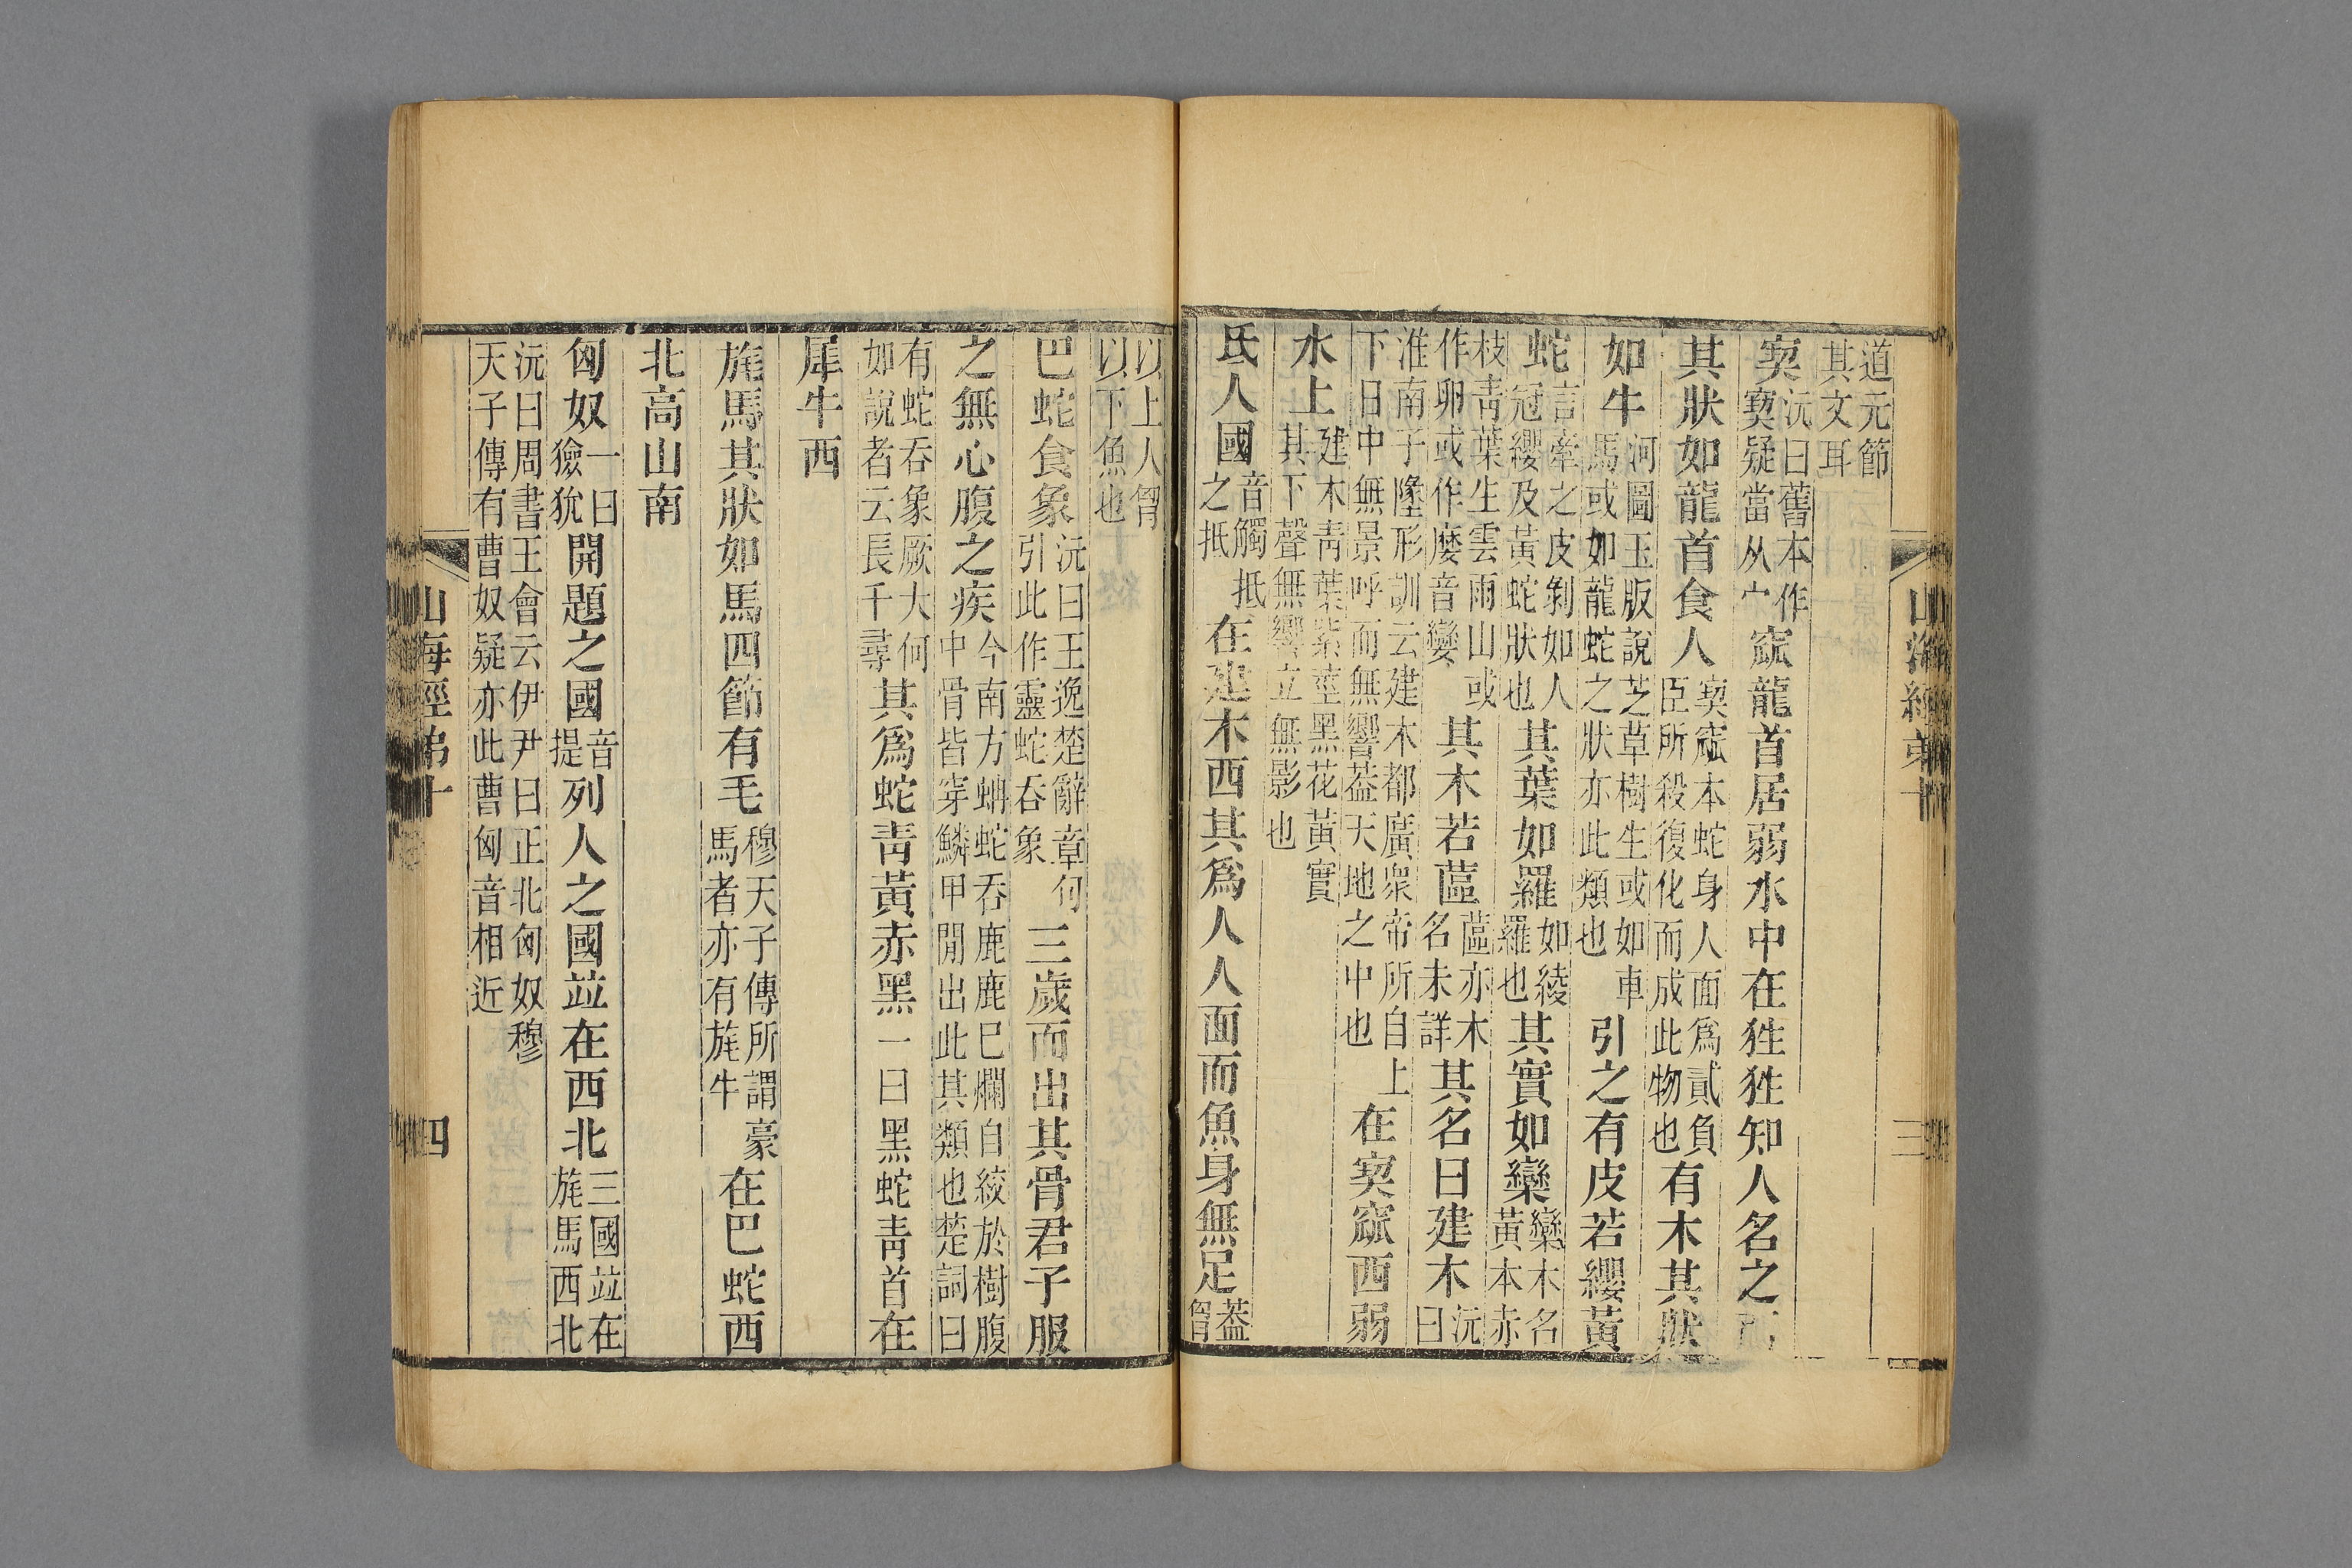 道元節
其文耳
窫沅曰舊本作窫疑當从宀窳龍首居弱水中在狌狌知人名之西
其狀如龍首食人窫窳本蛇身人面爲貳負臣所殺復化而成此物也有木其狀
如牛河圖玉版說芝草樹生或如車馬或如龍蛇之狀亦此類也引之有皮若纓黃
蛇言牽之皮剝如人冠纓及黃蛇狀也其葉如羅如綾羅也其實如欒欒木名黃本赤
枝靑葉生雲雨山或作卵或作麼音孿其木若蓲蓲亦木名未詳其名曰建木沅曰
淮南子隆形訓云建木都廣衆帝所自上下日中無景呼而無響葢天地之中也在窫窳西弱
水上建木靑葉紫莖黑花黃實其下聲無響立無影也
氐人國音觸抵之抵在建木西其爲人人面而魚身無足葢胷
以上人胷以下魚也
巴蛇食象沅曰王逸楚辭章句引此作靈蛇吞象三歲而出其骨君子服
之無心腹之疾今南方蚺蛇吞鹿鹿巳爛自絞於樹腹中骨皆穿鱗甲閒出此其類也楚詞曰
有蛇吞象厥大何如說者云長千尋其爲蛇靑黃赤黑一曰黑蛇靑首在
犀牛西
旄馬其狀如馬四節有毛穆天子傳所謂豪馬者亦有旄牛在巴蛇西
北高山南
匈奴一曰獫狁開題之國音提列人之國竝在西北三國竝在旄馬西北
沅曰周書王會云伊尹曰正北匈奴穆天子傳有曹奴疑亦此曹匈音相近
山海經弟十
三
山海經弟十
四